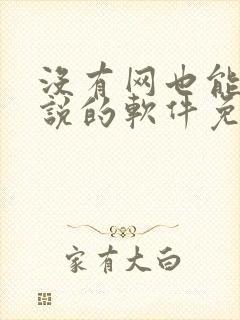 没有网也能
說的軟件免
家有大白